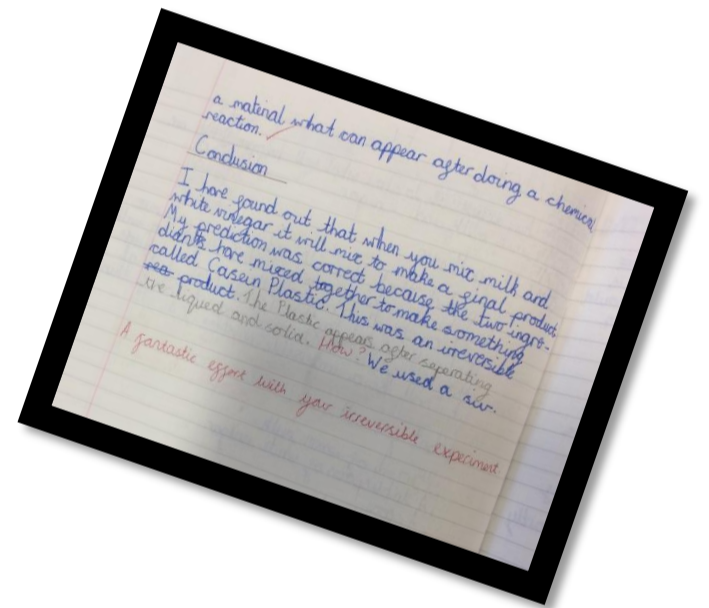 a material what can appear after doing a chemical
reaction.
Conclusion
I have found out that when you mix milk and
white vinegar it will mix to make a final product.
My prediction was correct because the two ingre-
dients have mixed together to make something
called Casein Plastic. This was an irreversible
rea product. The Plastic appears after seperating
the liqued and solid. How? We used a siv.
A fantastic effort with your irreversible experiment.